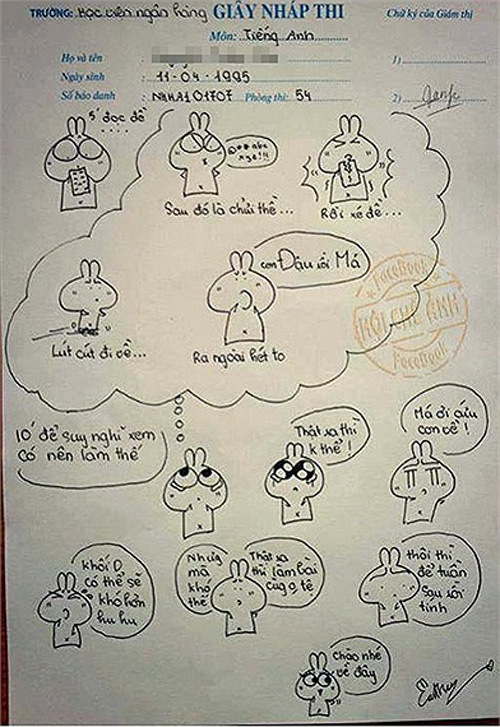 TRƯỜNG: Học viện ngân hàng GIẤY NHÁP THI
Chữ ký của Giám thị
Môn: Tiếng Anh
Họ và tên
1)
Ngày sinh 11-04-1995
Số báo danh NHHA101707 Phòng thi: 54
2)
5' đọc đề
....
Sau đó là chửi thề...
Rồi xé đề...
Lút cút đi về...
Ra ngoài hét to
con Đậu rồi Má
FaceBook
HỘI CHẾ ẢNH
FaceBook
10' để suy nghĩ xem
có nên làm thế
Thật ra thì
k thể!
Má ơi cứu
con về!
khối D
có thể sẽ
khó hơn
hu hu
Nhưng
mà
khó
thế
Thật ra
thì làm bài
cũg o tệ
thôi thì
để tuần
sau rồi
tính
Chào nhé
về đây